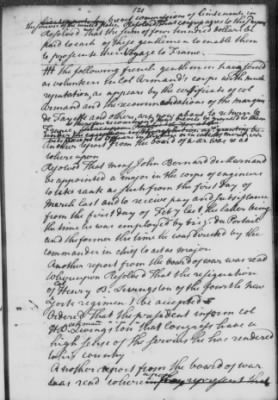 120
Resolved That the sum of four hundred dollars be
paid to each of these gentlemen to enable them
to prosecute their Voyage to France.
the following french gentlemen have served
as volunteers in Col Armand's corps with much
reputation, as appears by the certificate of col
Armand and the recommendations of the marquis
de Fayette and others, are about to return to
Another report from the board of war was read
whereupon
Resolved That mons John Bernard de
be appointed a major in the corps of engineers
to take rank as such from the first day of
March last and to receive pay and subsistence
from the first day of Feby last the latter being
the time he was employed by brig. du Portail
and the former the time he was directed by the
commander in chief to act as major
Another report from the board of war was read
Whereupon Resolved That the resignation
of Col Henry B. Livingston of the fourth New
York regiment be accepted
Ordered That the president inform col
H. B. Livingston that Congress have a
high sense of the services he has rendered
his country
Another report from the board of war
was read